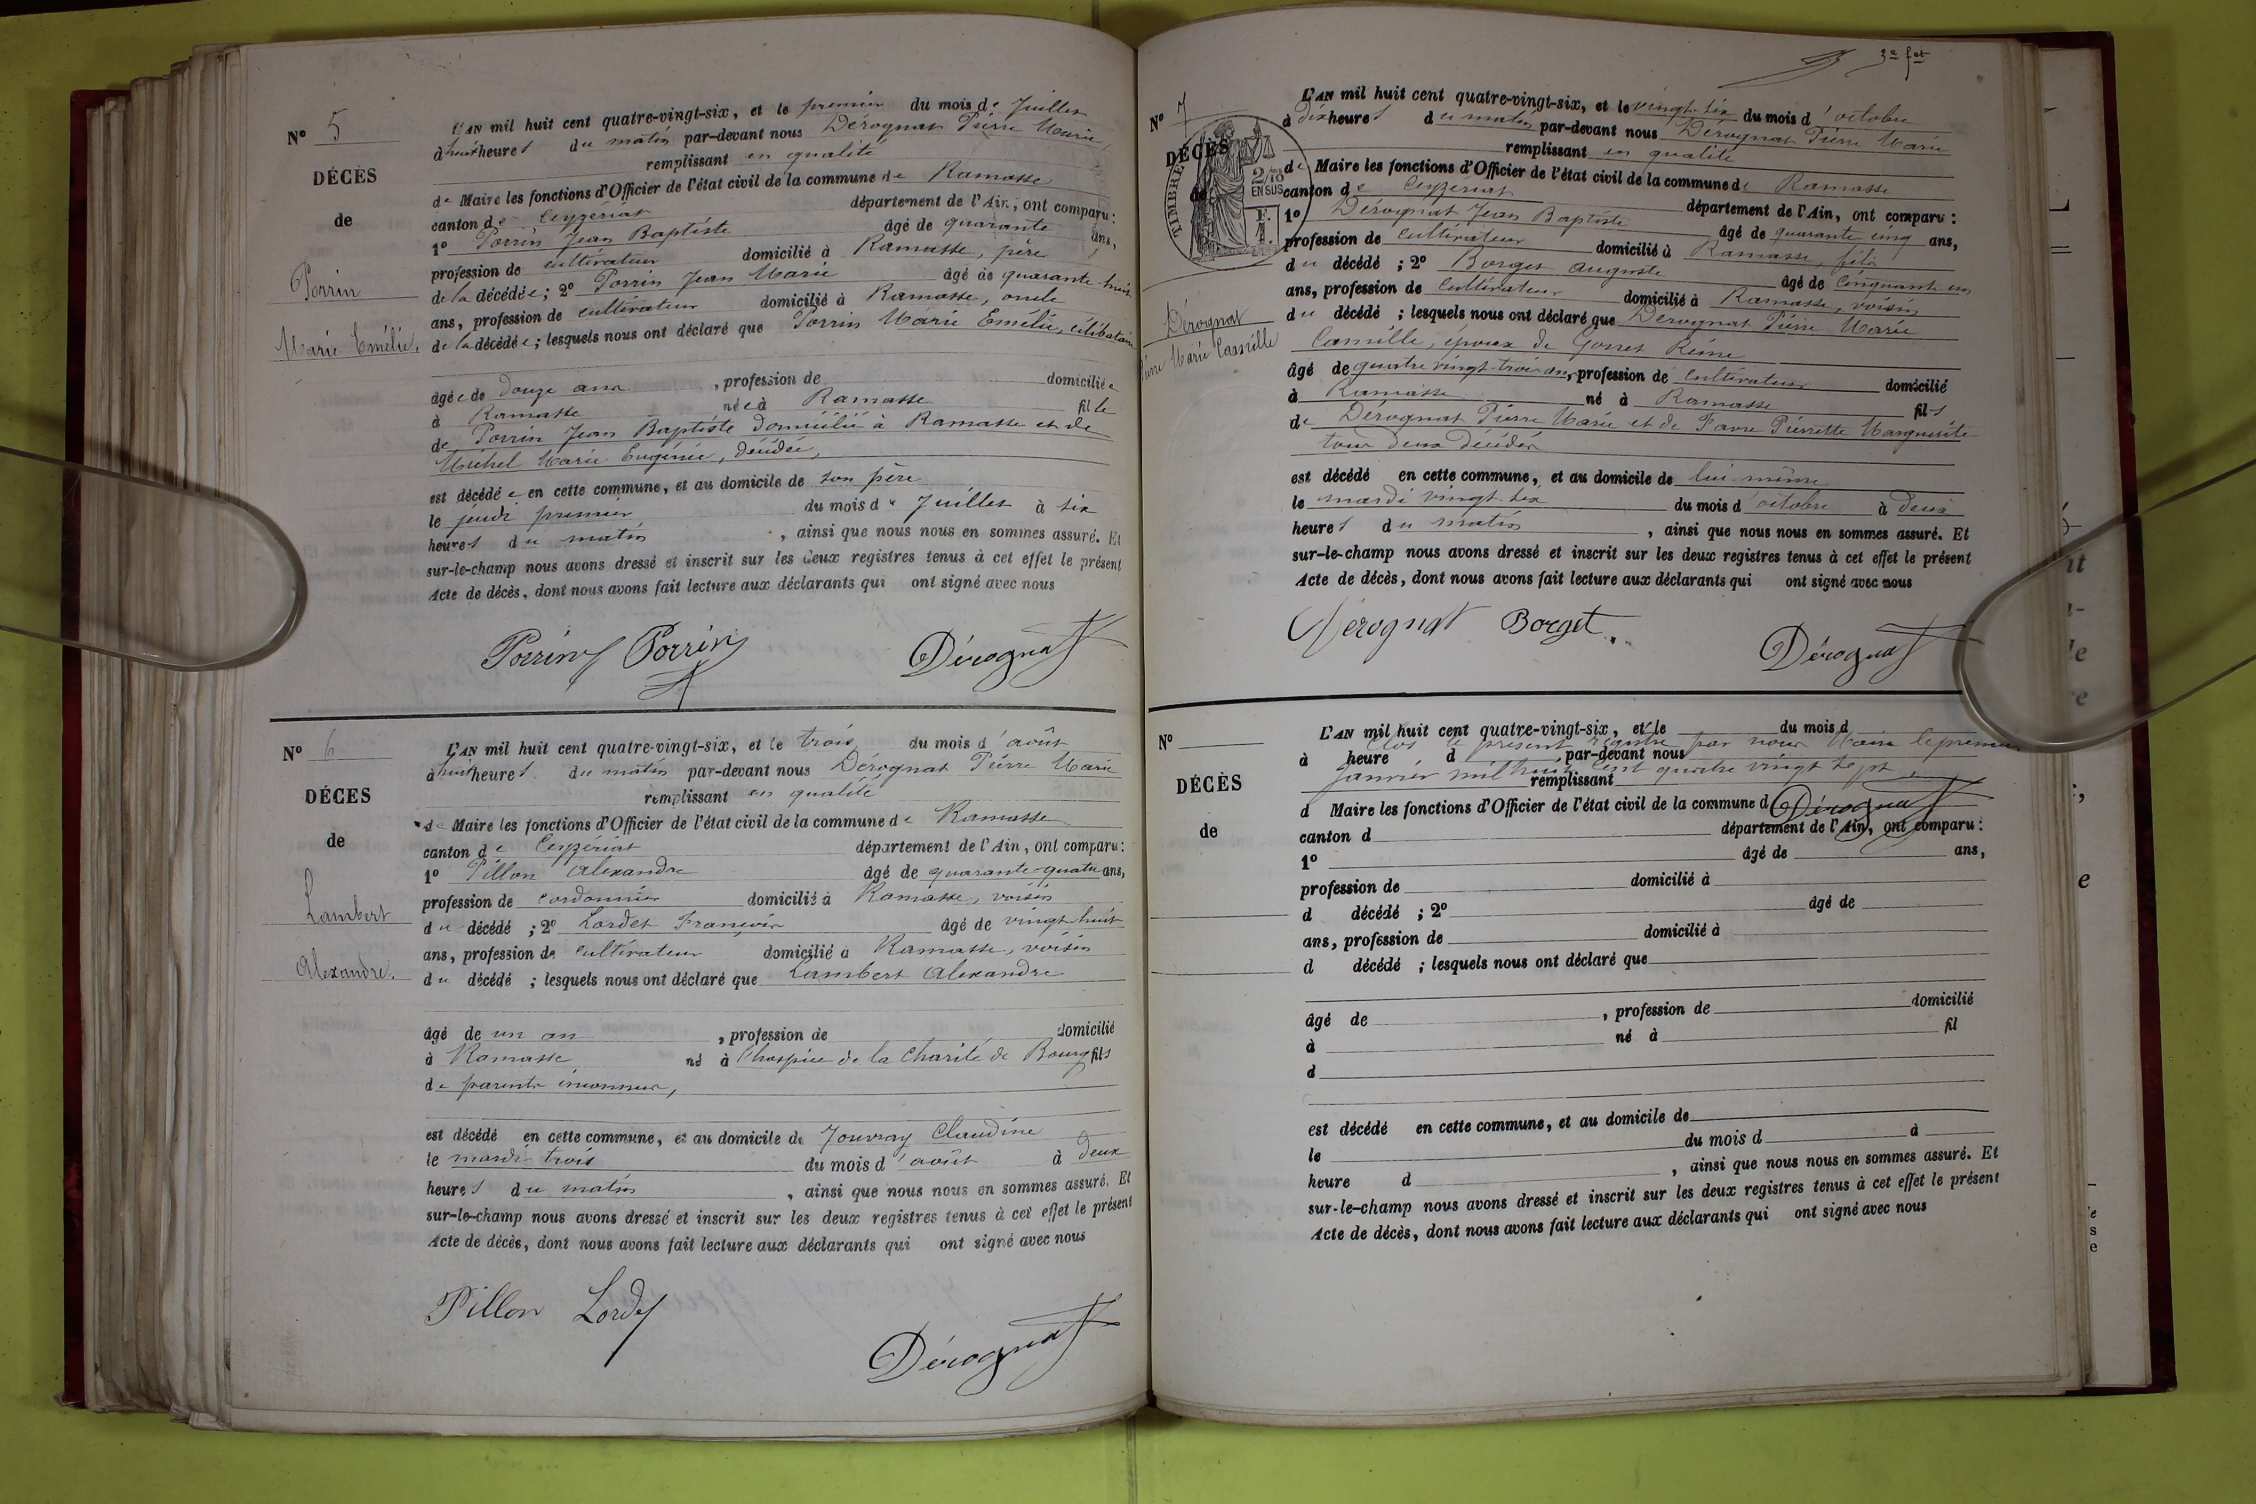 N° 5
DÉCÈS
de
Porrin
Marie Emélie,
L'AN mil huit cent quatre-vingt-six, et le premier du mois de Juillet
à huit heures du matin par-devant nous Dérognat Pierre Marie,
remplissant en qualité
de Maire les fonctions d'Officier de l'état civil de la commune de Ramasse
canton de Ceyzériat département de l'Ain, ont comparu :
1° Porrin Jean Baptiste âgé de quarante ans,
profession de cultivateur domicilié à Ramasse, père
de la décédée ; 2° Porrin Jean Marie âgé de quarante huit
ans, profession de cultivateur domicilié à Ramasse, oncle
de la décédée ; lesquels nous ont déclaré que Porrin Marie Emélie, célibataire
âgée de douze ans , profession de domiciliée
à Ramasse née à Ramasse fille
de Porrin Jean Baptiste domicilié à Ramasse et de
Michel Marie Eugénie, décédée,
est décédée en cette commune, et au domicile de son père
le jeudi premier du mois de Juillet à six
heures du matin , ainsi que nous nous en sommes assuré. Et
sur-le-champ nous avons dressé et inscrit sur les deux registres tenus à cet effet le présent
Acte de décès, dont nous avons fait lecture aux déclarants qui ont signé avec nous
Porrin Porrin Dérognat
N° 6
DÉCES
de
Lambert
Alexandre.
L'AN mil huit cent quatre-vingt-six, et le trois du mois d'août
à huit heures du matin par-devant nous Dérognat Pierre Marie
remplissant en qualité
de Maire les fonctions d'Officier de l'état civil de la commune de Ramasse
canton de Ceyzériat département de l'Ain, ont comparu :
1° Pillon Alexandre âgé de quarante-quatre ans,
profession de cordonnier domicilié à Ramasse, voisin
du décédé ; 2° Lordet François âgé de vingt huit
ans, profession de cultivateur domicilié à Ramasse, voisin
du décédé ; lesquels nous ont déclaré que Lambert Alexandre
âgé de un an , profession de domicilié
à Ramasse né à l'hospice de la charité de Bourg fils
de parents inconnus,
est décédé en cette commune, et au domicile de Jouvray Claudine
le mardi trois du mois d'août à deux
heures du matin , ainsi que nous nous en sommes assuré. Et
sur-le-champ nous avons dressé et inscrit sur les deux registres tenus à cet effet le présent
Acte de décès, dont nous avons fait lecture aux déclarants qui ont signé avec nous
Pillon Lordet
Dérognat
3e fet
N° 7
DÉCÈS
de
TIMBRE
2/10
EN SUS
F.
1.
Dérognat
Pierre Marie Camille
L'AN mil huit cent quatre-vingt-six, et le vingt-six du mois d'octobre
à dix heures du matin par-devant nous Dérognat Pierre Marie
remplissant en qualité
de Maire les fonctions d'Officier de l'état civil de la commune de Ramasse
canton de Ceyzériat département de l'Ain, ont comparu :
1° Dérognat Jean Baptiste âgé de quarante cinq ans,
profession de cultivateur domicilié à Ramasse, fils
du décédé ; 2° Borget auguste âgé de cinquante un
ans, profession de cultivateur domicilié à Ramasse, voisin
du décédé ; lesquels nous ont déclaré que Dérognat Pierre Marie
Camille, époux de Gorret Reine
âgé de quatre vingt-trois ans, profession de cultivateur domicilié
à Ramasse né à Ramasse fils
de Dérognat Pierre Marie et de Favre Pierrette Marguerite
tous deux décédés
est décédé en cette commune, et au domicile de lui-même
le mardi vingt-six du mois d'octobre à deux
heures du matin , ainsi que nous nous en sommes assuré. Et
sur-le-champ nous avons dressé et inscrit sur les deux registres tenus à cet effet le présent
Acte de décès, dont nous avons fait lecture aux déclarants qui ont signé avec nous
Dérognat Borget. Dérognat
N°
DÉCÈS
de
L'AN mil huit cent quatre-vingt-six, et le du mois d
Clos le présent registre par nous Maire le premier
à heure d par-devant nous
Janvier mil huit cent quatre vingt sept.
remplissant
d Maire les fonctions d'Officier de l'état civil de la commune d Dérognat
canton d département de l'Ain, ont comparu :
1° âgé de ans,
profession de domicilié à
d décédé ; 2° âgé de
ans, profession de domicilié à
d décédé ; lesquels nous ont déclaré que
âgé de , profession de domicilié
à né à fil
d
est décédé en cette commune, et au domicile de
le du mois d à
heure d , ainsi que nous nous en sommes assuré. Et
sur-le-champ nous avons dressé et inscrit sur les deux registres tenus à cet effet le présent
Acte de décès, dont nous avons fait lecture aux déclarants qui ont signé avec nous